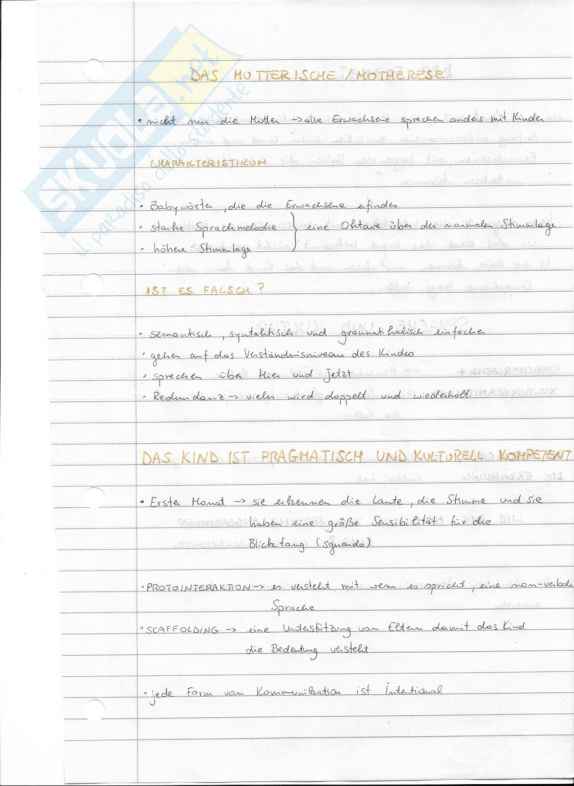 DAS MUTTERISCHE / MOTHERESE
• nicht nur die Mutter → alle Erwachsene sprechen anders mit Kinder
CHARAKTERISTIKUM
• Babywörter, die die Erwachsene erfinden
• starke Sprachmelodie } eine Oktave über der normalen Stimmlage
• höhere Stimmlage
IST ES FALSCH?
• semantisch, syntaktisch und grammatikalisch einfacher
• gehen auf das Verständnisniveau des Kindes
• sprechen über Hier und Jetzt
• Redundanz → vieles wird doppelt und wiederholt
DAS KIND IST PRAGMATISCH UND KULTURELL KOMPETENT
• Erster Monat → sie erkennen die Laute, die Stimme und sie
haben eine große Sensibilität für die
Blickfang (sguardo)
• PROTOINTERAKTION → es versteht mit wem es spricht, eine non-verbale
Sprache
• SCAFFOLDING → eine Unterstützung von Eltern damit das Kind
die Bedeutung versteht
• jede Form von Kommunikation ist Intentional
SKUOLA.net
il paradiso dello studente